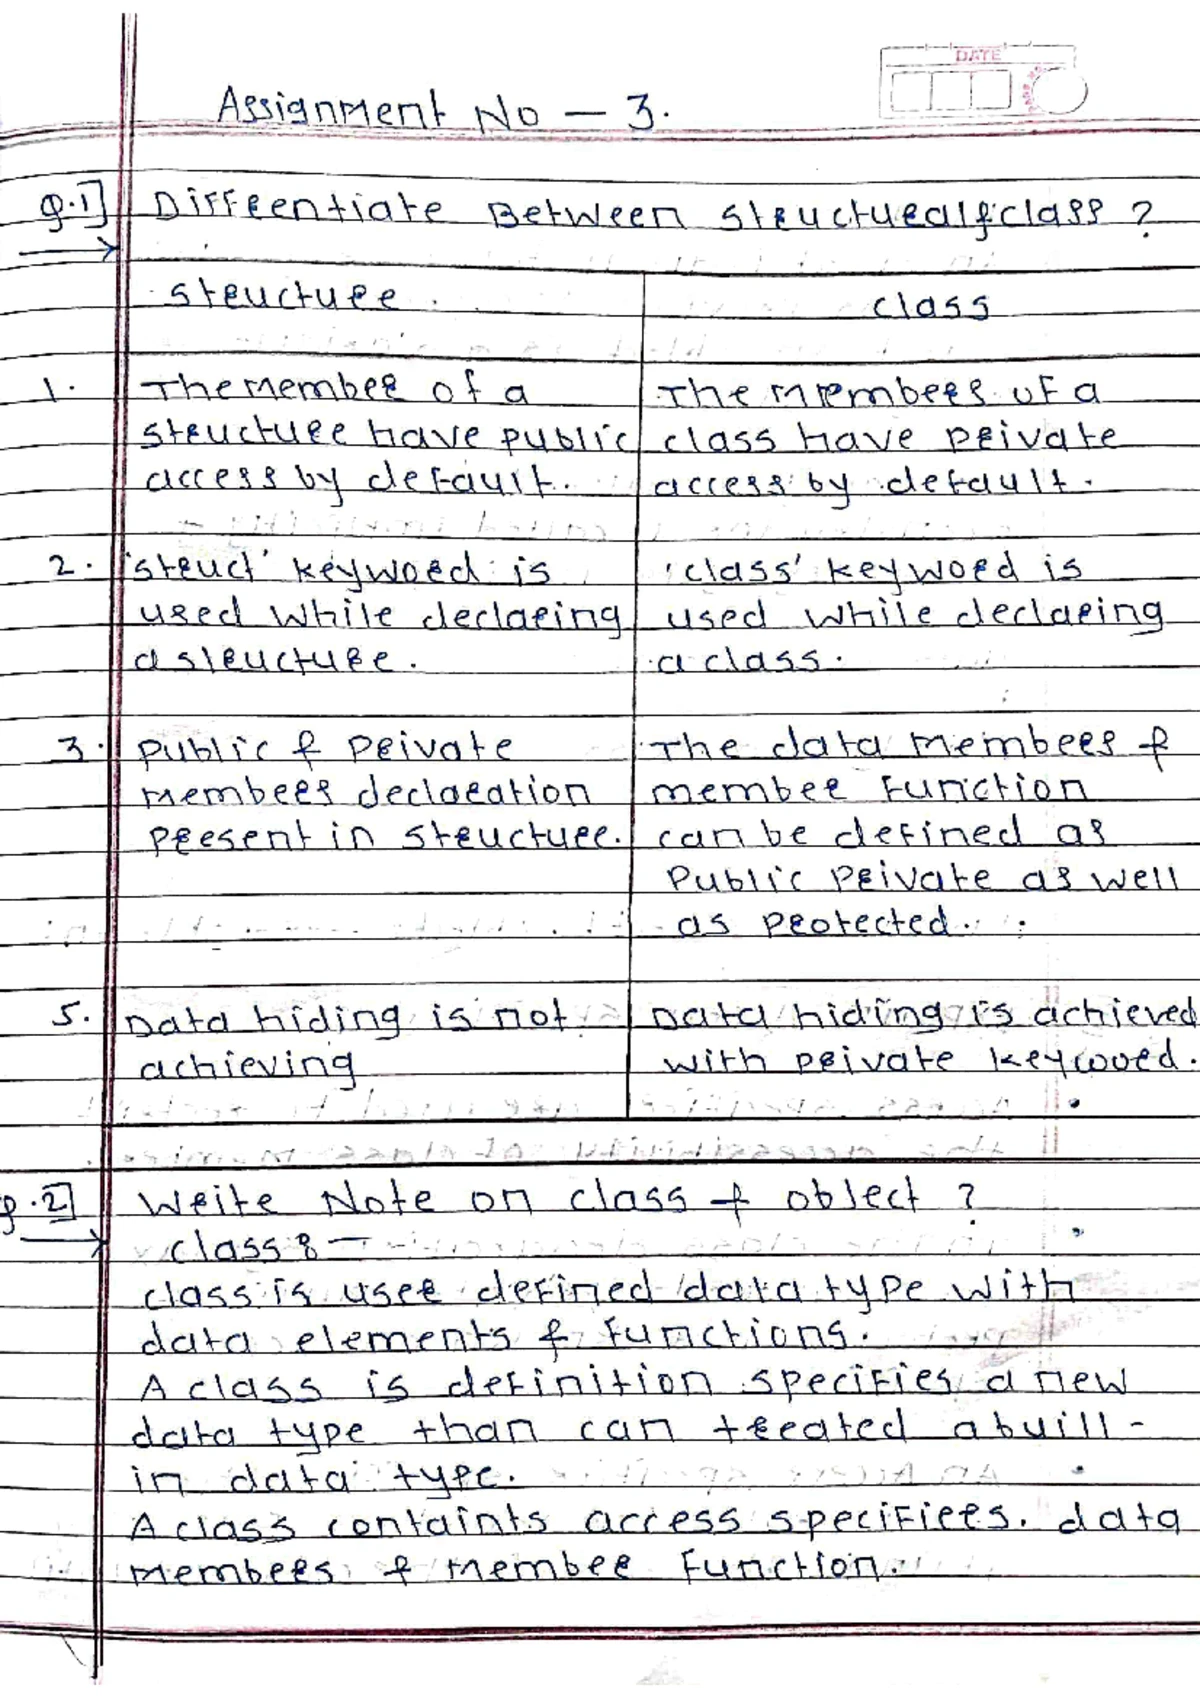 DATE
Assignment No — 3.
Q.1] Diffeentiate Between structure & class ?
structure. class
1. The member of a The members of a
structure have public class have private
access by default. access by default.
2. 'struct' keyword is 'class' keyword is
used while declaring used while declaring
a structure. a class.
3. Public & Private The data members &
members declaration member Function
present in structure. can be defined as
Public Private as well
as protected.
5. Data hiding is not Data hiding is achieved
achieving with private keyword.
Q.2] Write Note on class & object ?
class :-
class is user defined data type with
data elements & functions.
A class is definition specifies a new
data type than can treated a buill-
in data type.
A class containts access specifiers. data
members & member Function.